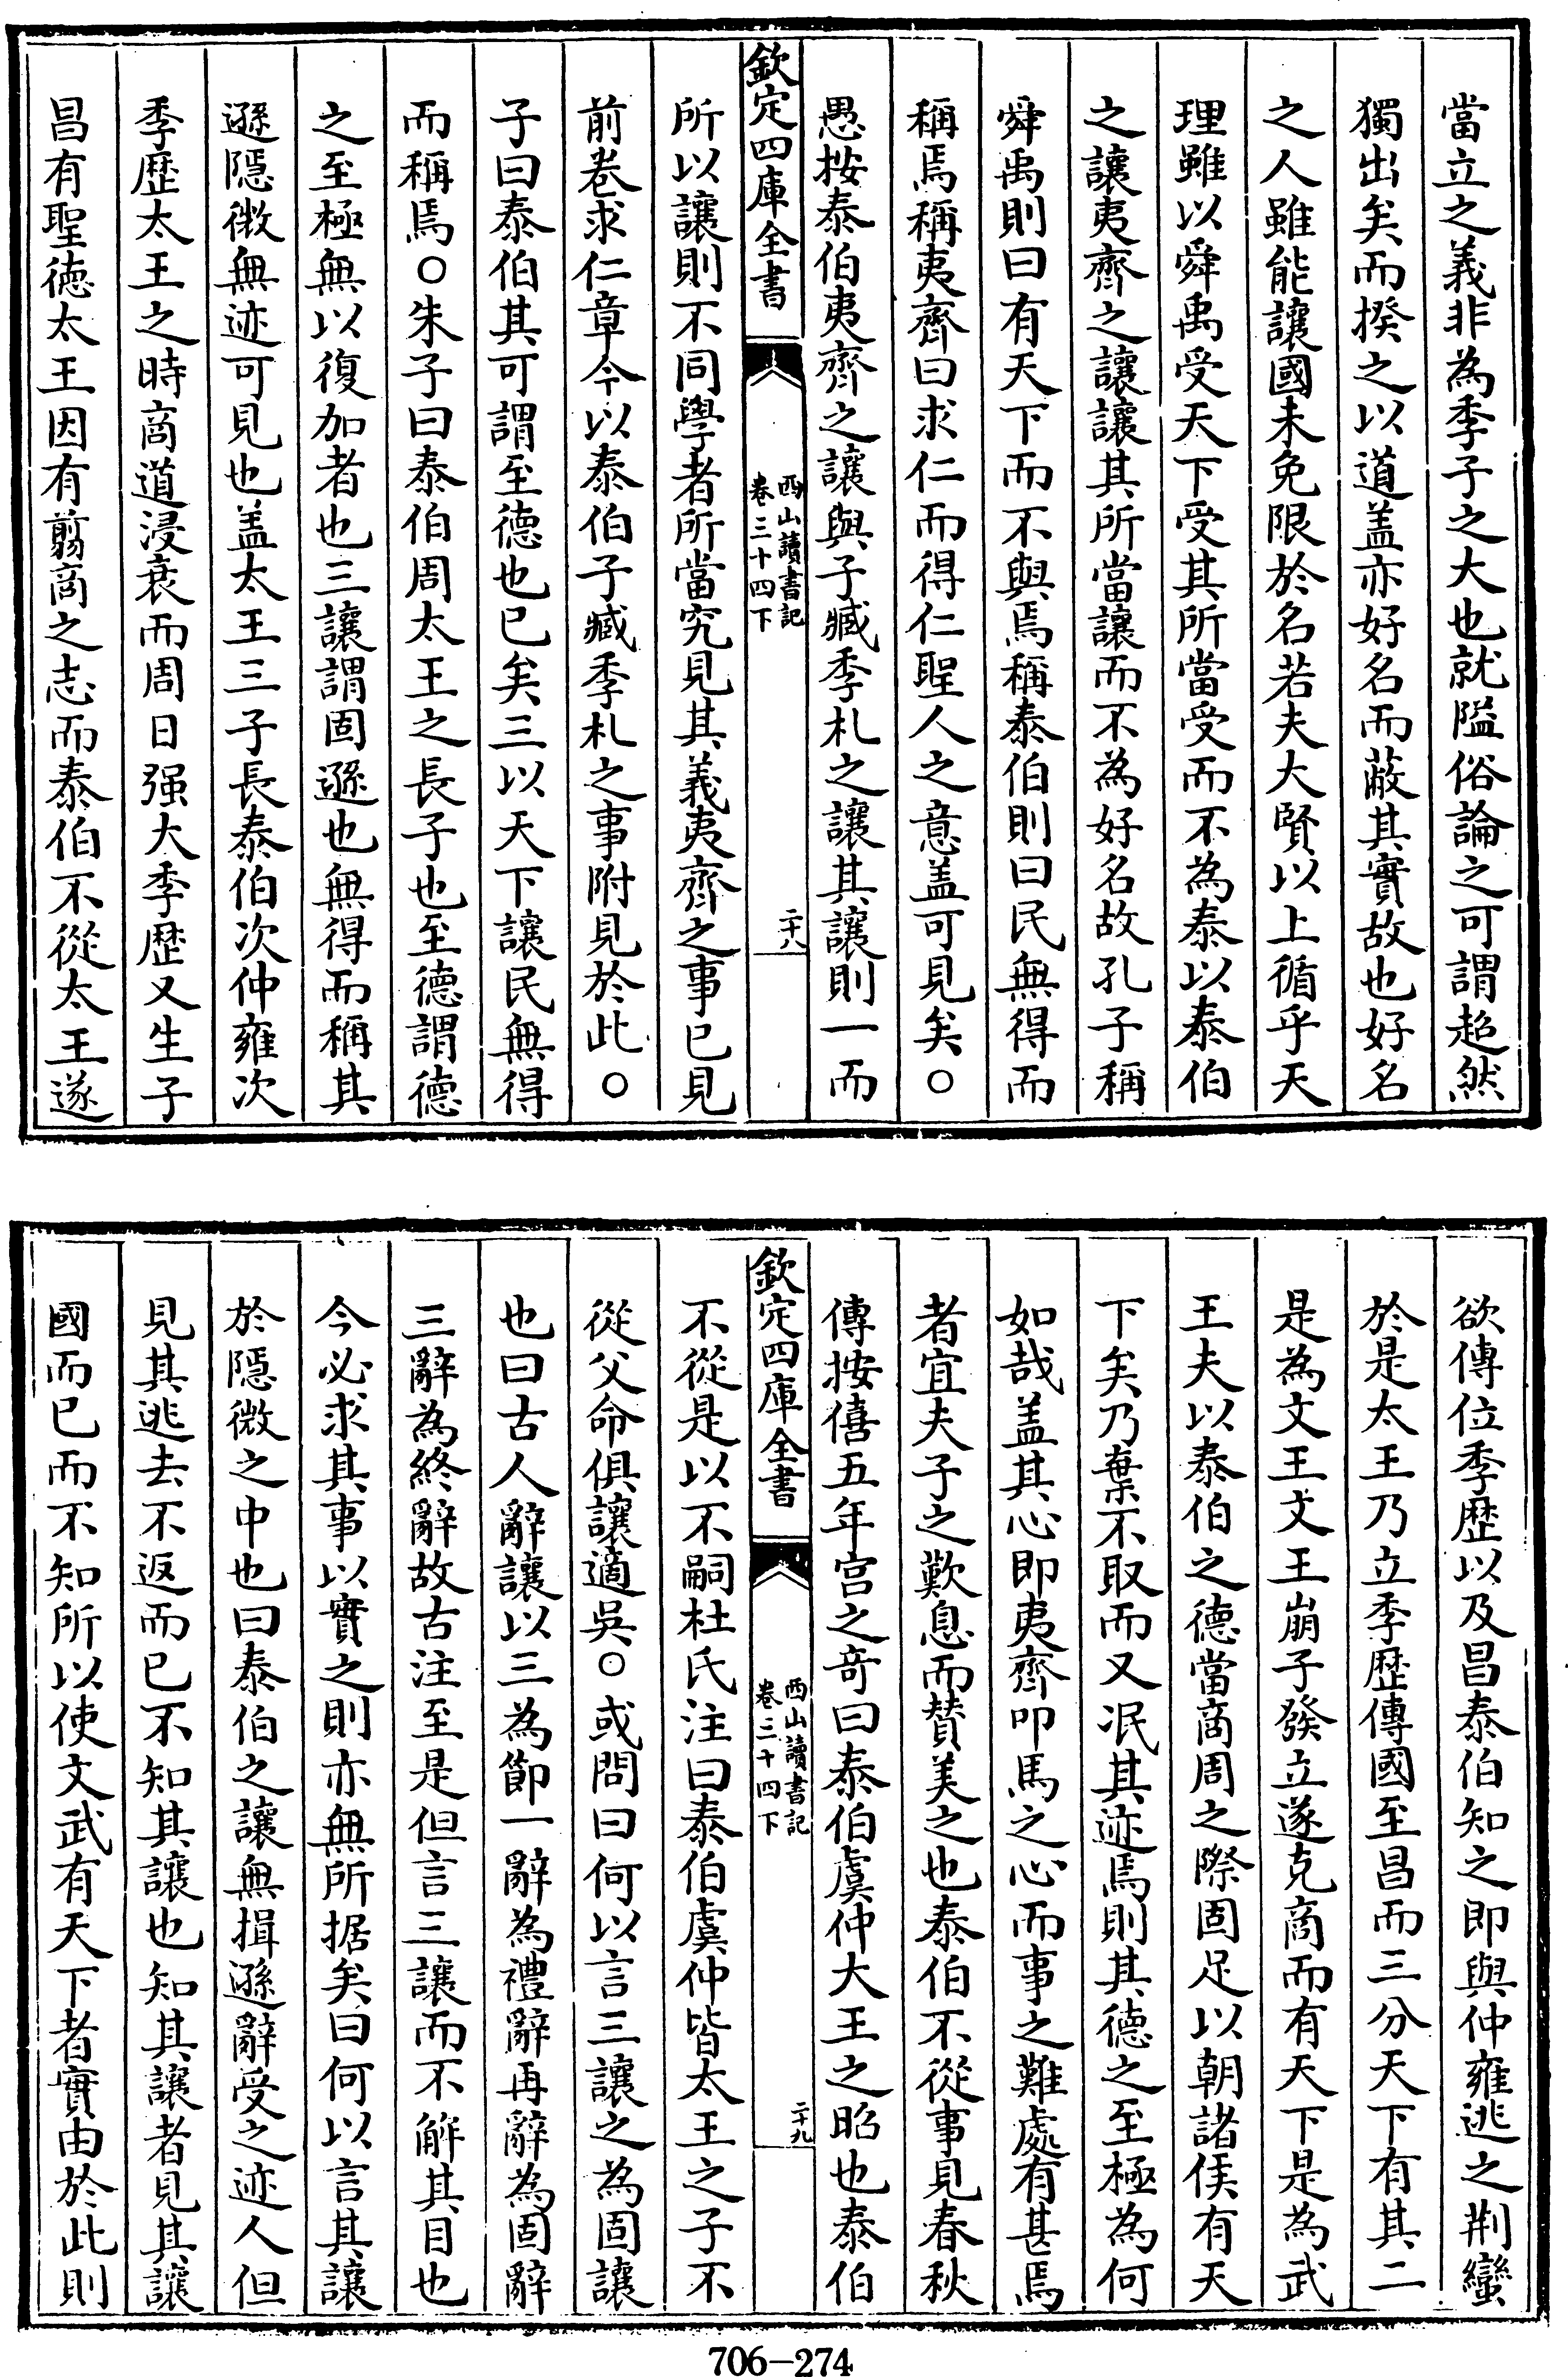 當立之義非為季子之大也就隘俗論之可謂超然
獨出矣而揆之以道盖亦好名而蔽其實故也好名
之人雖能讓國未免限於名若夫大賢以上循乎天
理雖以舜禹受天下受其所當受而不為泰以泰伯
之讓夷齊之讓讓其所當讓而不為好名故孔子稱
舜禹則曰有天下而不與焉稱泰伯則曰民無得而
稱焉稱夷齊曰求仁而得仁聖人之意盖可見矣○
愚按泰伯夷齊之讓與子臧季札之讓其讓則一而
欽定四庫全書
西山讀書記
卷三十四下
二十八
所以讓則不同學者所當究見其義夷齊之事已見
前卷求仁章今以泰伯子臧季札之事附見於此○
子曰泰伯其可謂至德也已矣三以天下讓民無得
而稱焉○朱子曰泰伯周太王之長子也至德謂德
之至極無以復加者也三讓謂固遜也無得而稱其
遜隱微無迹可見也盖太王三子長泰伯次仲雍次
季歴太王之時商道浸衰而周日强大季歴又生子
昌有聖德太王因有翦商之志而泰伯不從太王遂
欲傳位季歴以及昌泰伯知之即與仲雍逃之荆蠻
於是太王乃立季歴傳國至昌而三分天下有其二
是為文王文王崩子發立遂克商而有天下是為武
王夫以泰伯之德當商周之際固足以朝諸侯有天
下矣乃棄不取而又泯其迹焉則其德之至極為何
如哉盖其心即夷齊叩馬之心而事之難處有甚焉
者宜夫子之歎息而賛美之也泰伯不從事見春秋
傳按僖五年宫之奇曰泰伯虞仲大王之昭也泰伯
欽定四庫全書
西山讀書記
卷三十四下
二十九
不從是以不嗣杜氏注曰泰伯虞仲皆太王之子不
從父命俱讓適吳○或問曰何以言三讓之為固讓
也曰古人辭讓以三為節一辭為禮辭再辭為固辭
三辭為終辭故古注至是但言三讓而不解其目也
今必求其事以實之則亦無所据矣曰何以言其讓
於隱微之中也曰泰伯之讓無揖遜辭受之迹人但
見其逃去不返而已不知其讓也知其讓者見其讓
國而已而不知所以使文武有天下者實由於此則
706-274